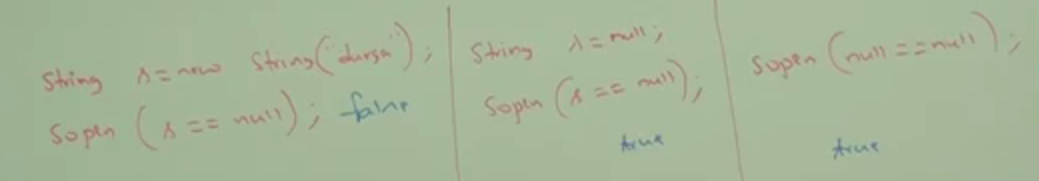 String s = new String("durga");
Sopln (s == null); false
String s = null;
Sopln (s == null);
true
Sopln (null == null);
true